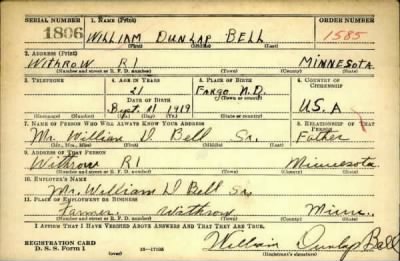 SERIAL NUMBER 1. NAME (Print) ORDER NUMBER
1806 WILLIAM DUNLAP BELL 1585
(First) (Middle) (Last)
2. ADDRESS (Print)
WITHROW R1 MINNESOTA
(Number and street or R. F. D. number) (Town) (County) (State)
3. TELEPHONE 4. AGE IN YEARS 5. PLACE OF BIRTH 6. COUNTRY OF CITIZENSHIP
21 FARGO N.D.
DATE OF BIRTH (Town or county)
Sept. 11 1919 U.S.A
(Exchange) (Number) (Mo.) (Day) (Yr.) (State or country)
7. NAME OF PERSON WHO WILL ALWAYS KNOW YOUR ADDRESS 8. RELATIONSHIP OF THAT PERSON
Mr. William D Bell Sr. Father
(Mr., Mrs., Miss) (First) (Middle) (Last)
9. ADDRESS OF THAT PERSON
Withrow R1 Minnesota
(Number and street or R. F. D. number) (Town) (County) (State)
10. EMPLOYER'S NAME
Mr. William D Bell Sr.
11. PLACE OF EMPLOYMENT OR BUSINESS
Farmer Withrow Minn.
(Number and street or R. F. D. number) (Town) (County) (State)
I AFFIRM THAT I HAVE VERIFIED ABOVE ANSWERS AND THAT THEY ARE TRUE.
REGISTRATION CARD
D. S. S. Form 1 (over) William Dunlap Bell
(Registrant's signature)